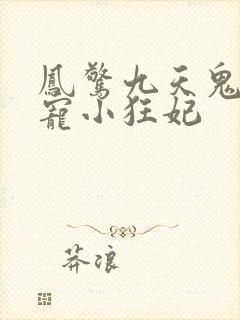 鳳驚九天鬼
寵小狂妃
莽浪